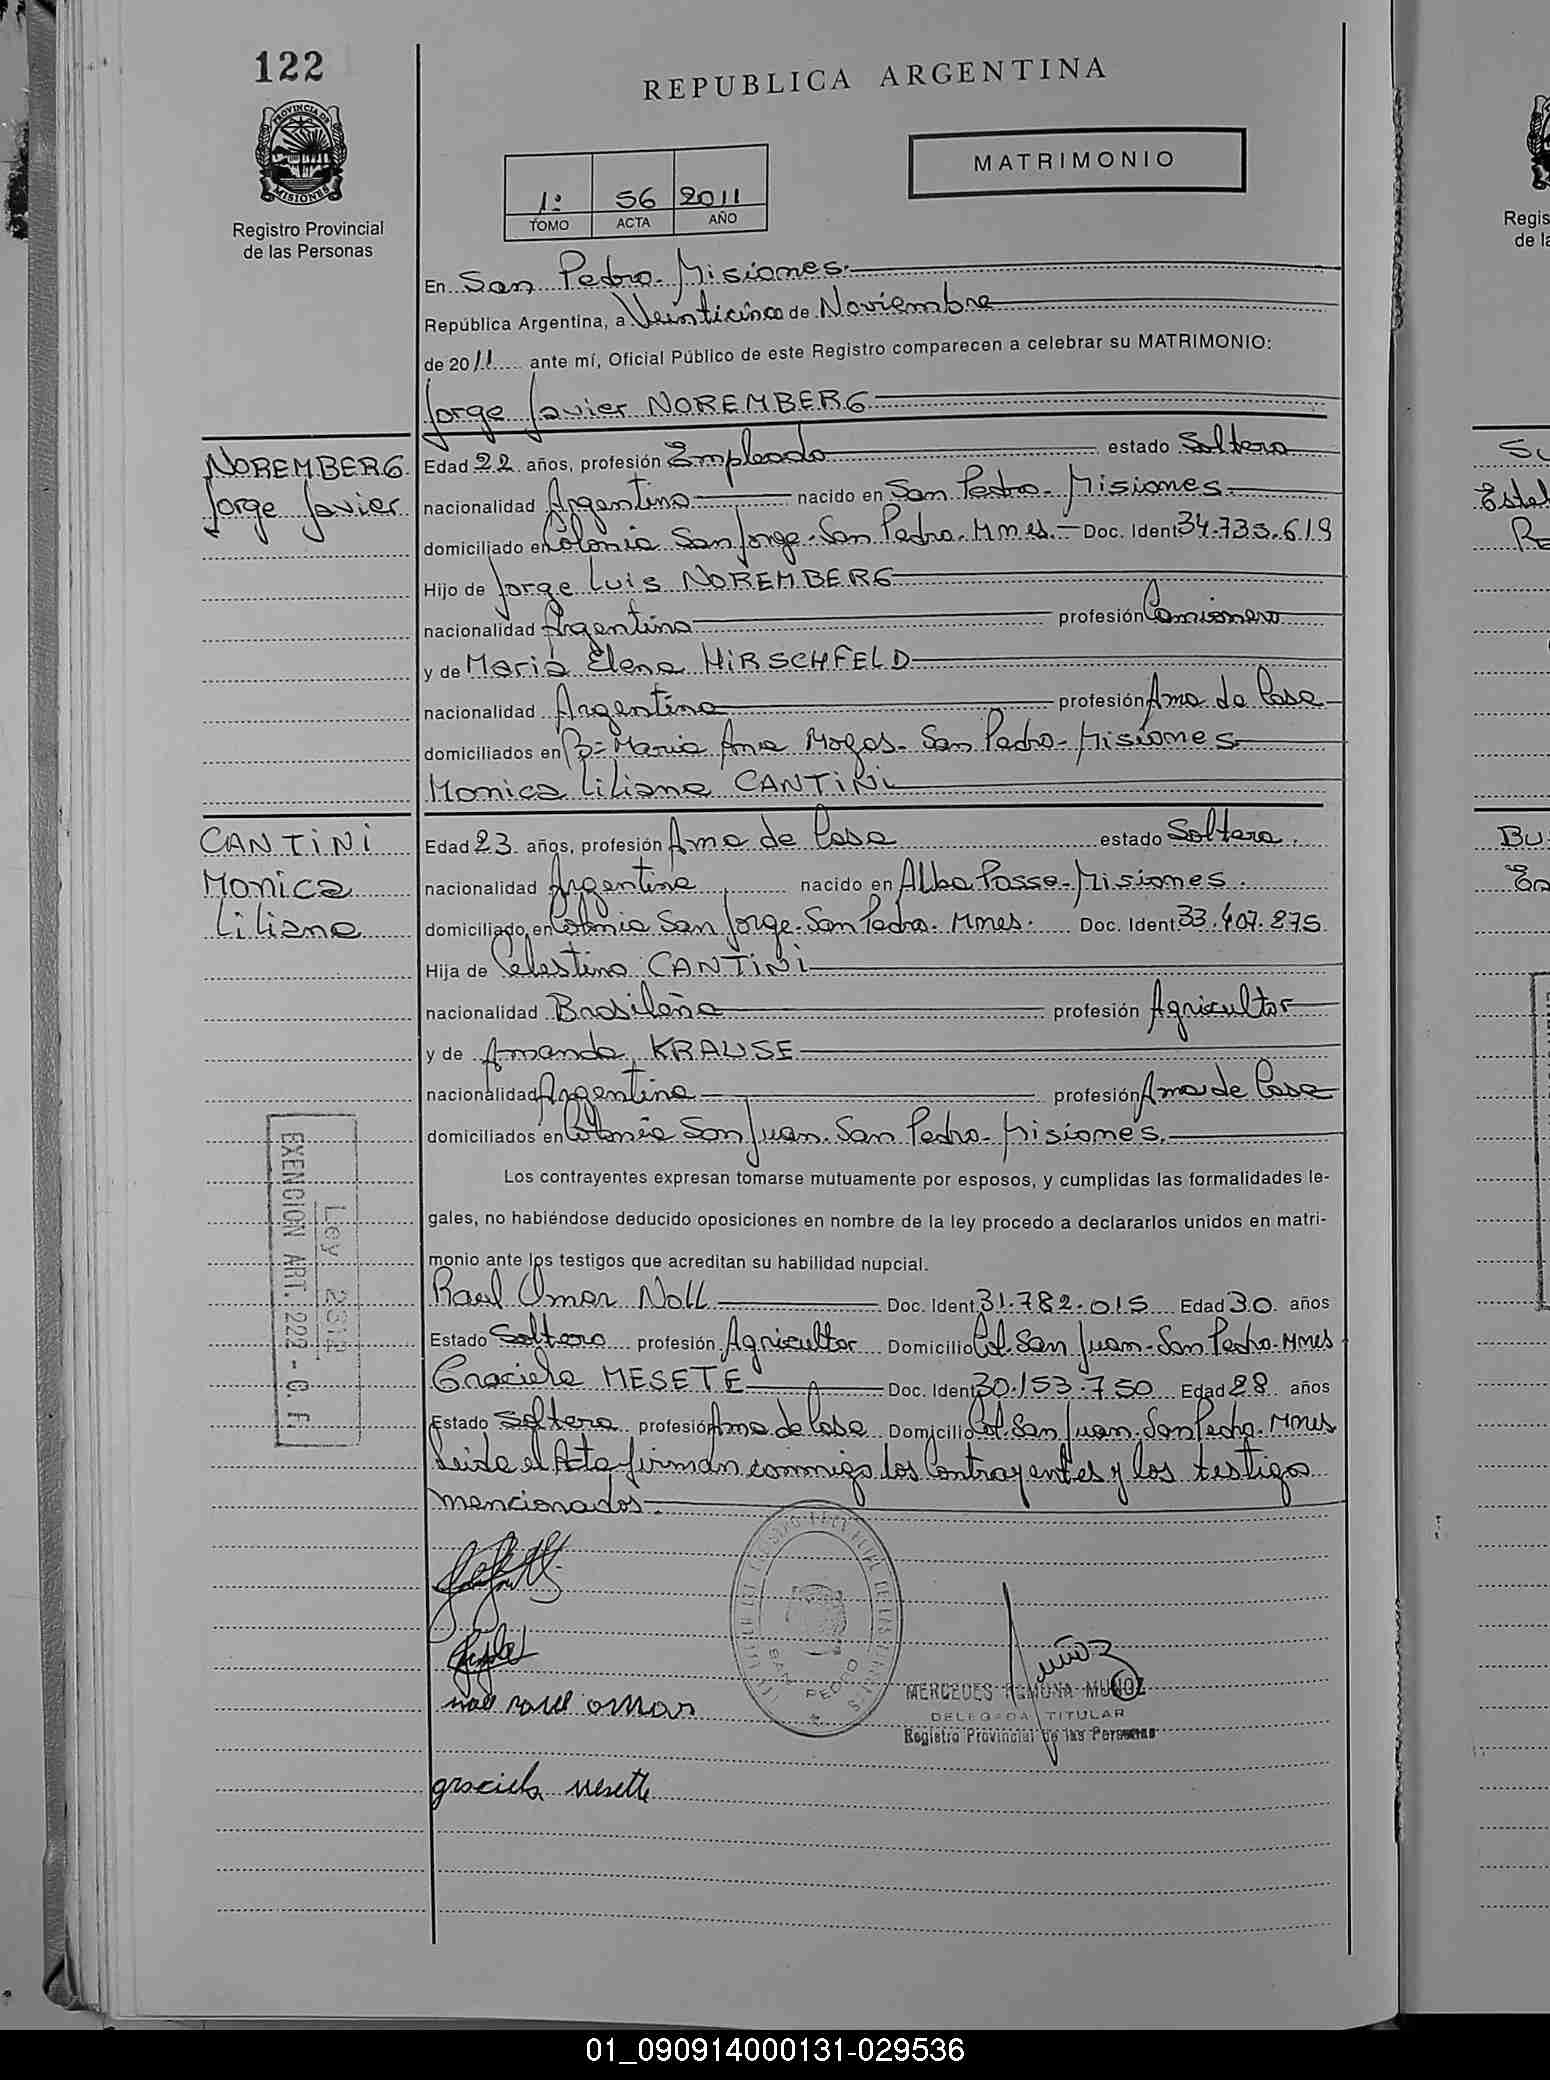 122
REPUBLICA ARGENTINA
MATRIMONIO
PROVINCIA DE
MISIONES
Registro Provincial
de las Personas
1º 56 2011
TOMO ACTA AÑO
En San Pedro - Misiones.
República Argentina, a Veinticinco de Noviembre
de 2011 ante mí, Oficial Público de este Registro comparecen a celebrar su MATRIMONIO:
Jorge Javier NOREMBERG
NOREMBERG
Jorge Javier
Edad 22 años, profesión Empleado estado Soltero
nacionalidad Argentino nacido en San Pedro - Misiones
domiciliado en Colonia San Jorge - San Pedro - Mnes. Doc. Ident 34.735.619
Hijo de Jorge Luis NOREMBERG
nacionalidad Argentina profesión Camionero
y de Maria Elena HIRSCHFELD
nacionalidad Argentina profesión Ama de Casa
domiciliados en Bº Maria Ana Mogas - San Pedro - Misiones
Monica Liliana CANTINI
CANTINI
Monica
Liliana
Edad 23 años, profesión Ama de Casa estado Soltera.
nacionalidad Argentina nacido en Alba Posse - Misiones.
domiciliado en Colonia San Jorge - San Pedro - Mnes. Doc. Ident 33.407.275
Hija de Celestino CANTINI
nacionalidad Brasileña profesión Agricultor
y de Amanda KRAUSE
nacionalidad Argentina profesión Ama de Casa
domiciliados en Colonia San Juan - San Pedro - Misiones.
Los contrayentes expresan tomarse mutuamente por esposos, y cumplidas las formalidades le-
gales, no habiéndose deducido oposiciones en nombre de la ley procedo a declararlos unidos en matri-
monio ante los testigos que acreditan su habilidad nupcial.
EXENCION ART. 222 - C.F.
Ley 2312
Raul Omar Noll Doc. Ident 31.782.015 Edad 30 años
Estado Soltero profesión Agricultor Domicilio Col. San Juan - San Pedro - Mnes
Graciela MESETE Doc. Ident 30.153.750 Edad 28 años
Estado Soltera profesión Ama de Casa Domicilio Col. San Juan - San Pedro - Mnes
Leida el Acta firman conmigo los Contrayentes y los testigos
mencionados.
SAN PEDRO
Muñoz
MERCEDES RAMONA MUÑOZ
DELEGADA TITULAR
Registro Provincial de las Personas
noll raul omar
graciela mesette
Regis
de la
01_090914000131-029536